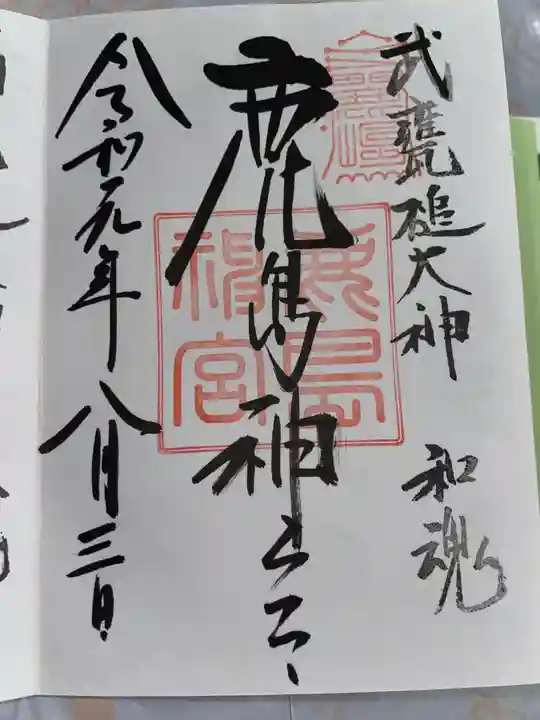 武甕槌大神 和魂
鹿島神宮
鹿島
神宮
令和元年 八月三日